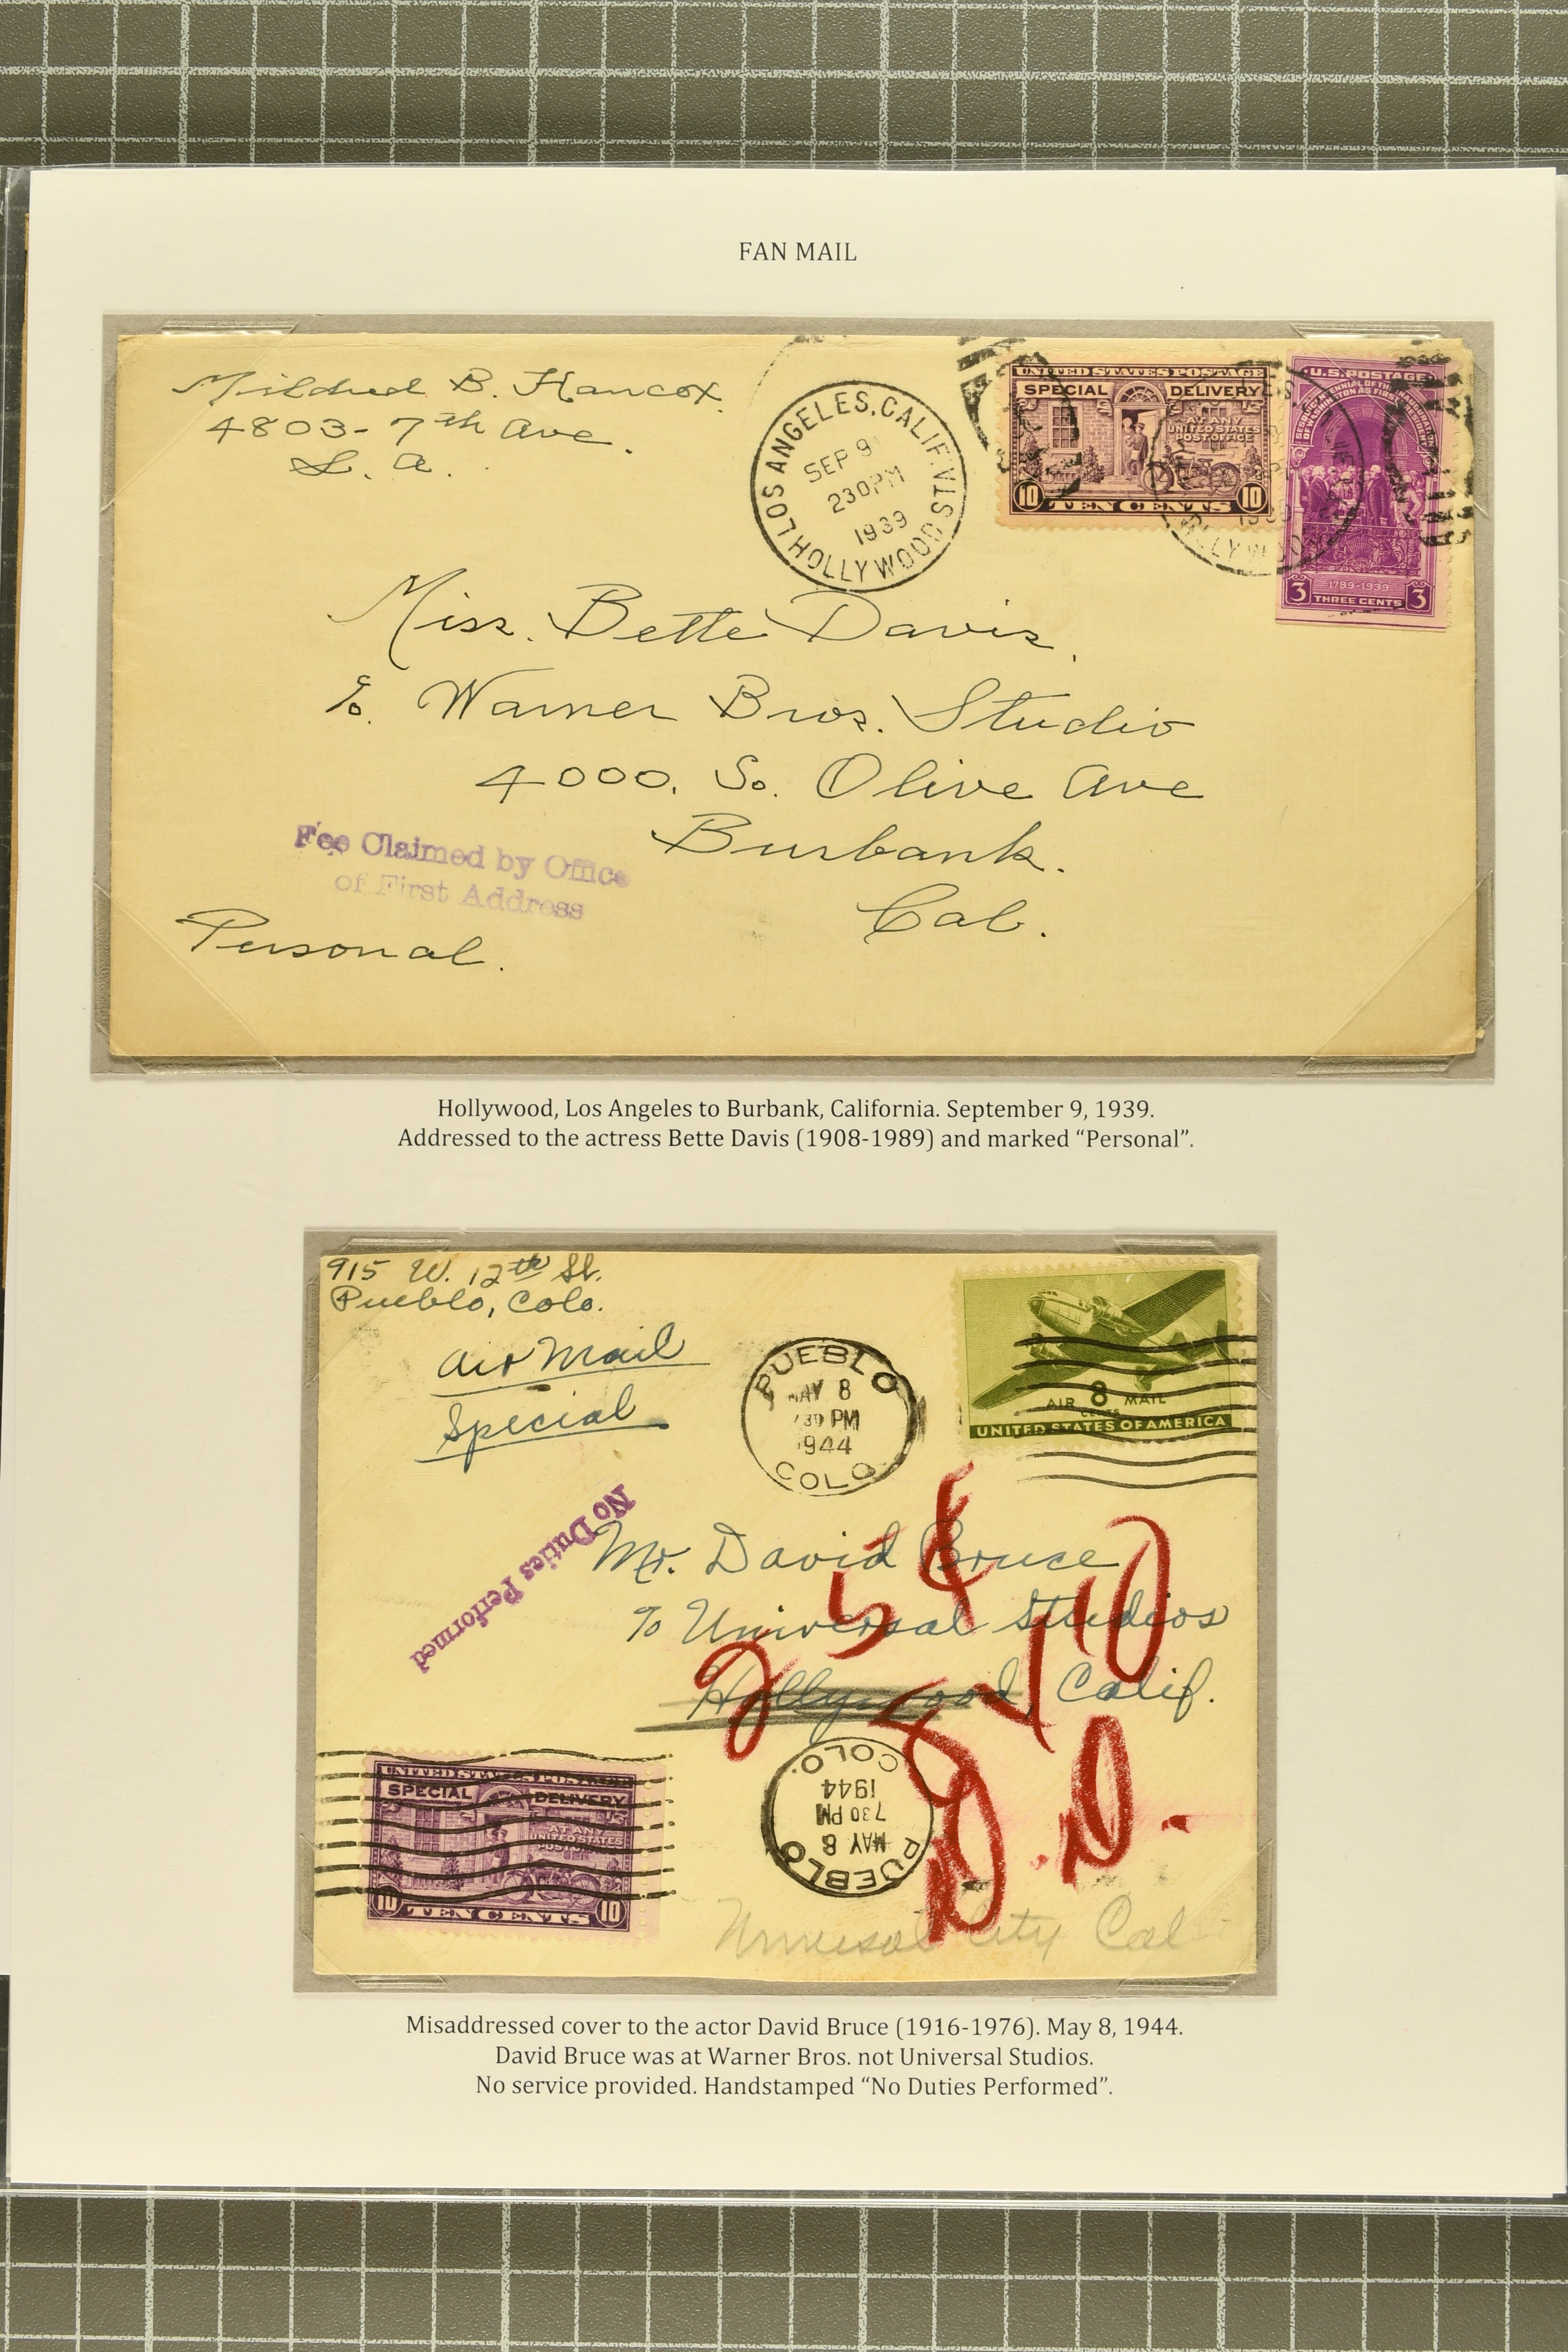 FAN MAIL
Mildred B. Hancox.
4803 - 7th Ave.
L. A.
LOS ANGELES, CALIF.
SEP 9
230 PM
1939
HOLLYWOOD STA.
UNITED STATES POSTAGE
SPECIAL DELIVERY
AT ANY
UNITED STATES
POST OFFICE
10 10
TEN CENTS
U.S. POSTAGE
1789-1939
3 THREE CENTS 3
Miss. Bette Davis.
c/o. Warner Bros. Studio
4000. So. Olive Ave
Burbank.
Cal.
Fee Claimed by Office
of First Address
Personal.
Hollywood, Los Angeles to Burbank, California. September 9, 1939.
Addressed to the actress Bette Davis (1908-1989) and marked “Personal”.
915 W. 12th St.
Pueblo, Colo.
Air Mail
Special
PUEBLO
MAY 8
730 PM
1944
COLO
AIR 8 MAIL
CENTS
UNITED STATES OF AMERICA
No Duties Performed
Mr. David Bruce
c/o Universal Studios
Hollywood, Calif.
D.D.
UNITED STATES POSTAGE
SPECIAL DELIVERY
AT ANY
UNITED STATES
POST OFFICE
10 10
TEN CENTS
PUEBLO
MAY 8
730 PM
1944
COLO.
Universal City Cal
Misaddressed cover to the actor David Bruce (1916-1976). May 8, 1944.
David Bruce was at Warner Bros. not Universal Studios.
No service provided. Handstamped “No Duties Performed”.